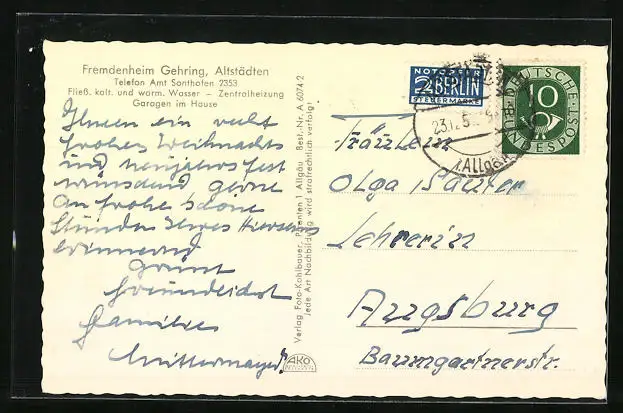 Fremdenheim Gehring, Altstädten
Telefon Amt Sonthofen 2353
Fließ. kalt. und warm. Wasser – Zentralheizung
Garagen im Hause
Ihnen ein recht
frohes Weihnachts
und neujahrsfest
wünschend gerne
an frohe schöne
Stunden Ihres Hierseins
erinnernd
grüßt
freundlichst
Familie
Mittermayer
Verlag Foto-Kohlbauer, Pfronten 1 Allgäu Best.-Nr. A 6074 2
Jede Art Nachbildung wird strafrechtlich verfolgt
AKO
NOTOPFER
2 BERLIN
STEUERMARKE
DEUTSCHE
10
BUNDESPOST
23.12.5
(Allgäu)
Fräulein
Olga Sauter
Lehrerin
Augsburg
Baumgartnerstr.